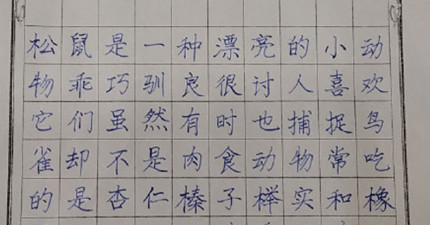 松鼠是一种漂亮的小动
物乖巧驯良很讨人喜欢
它们虽然有时也捕捉鸟
雀却不是肉食动物常吃
的是杏仁榛子榉实和橡